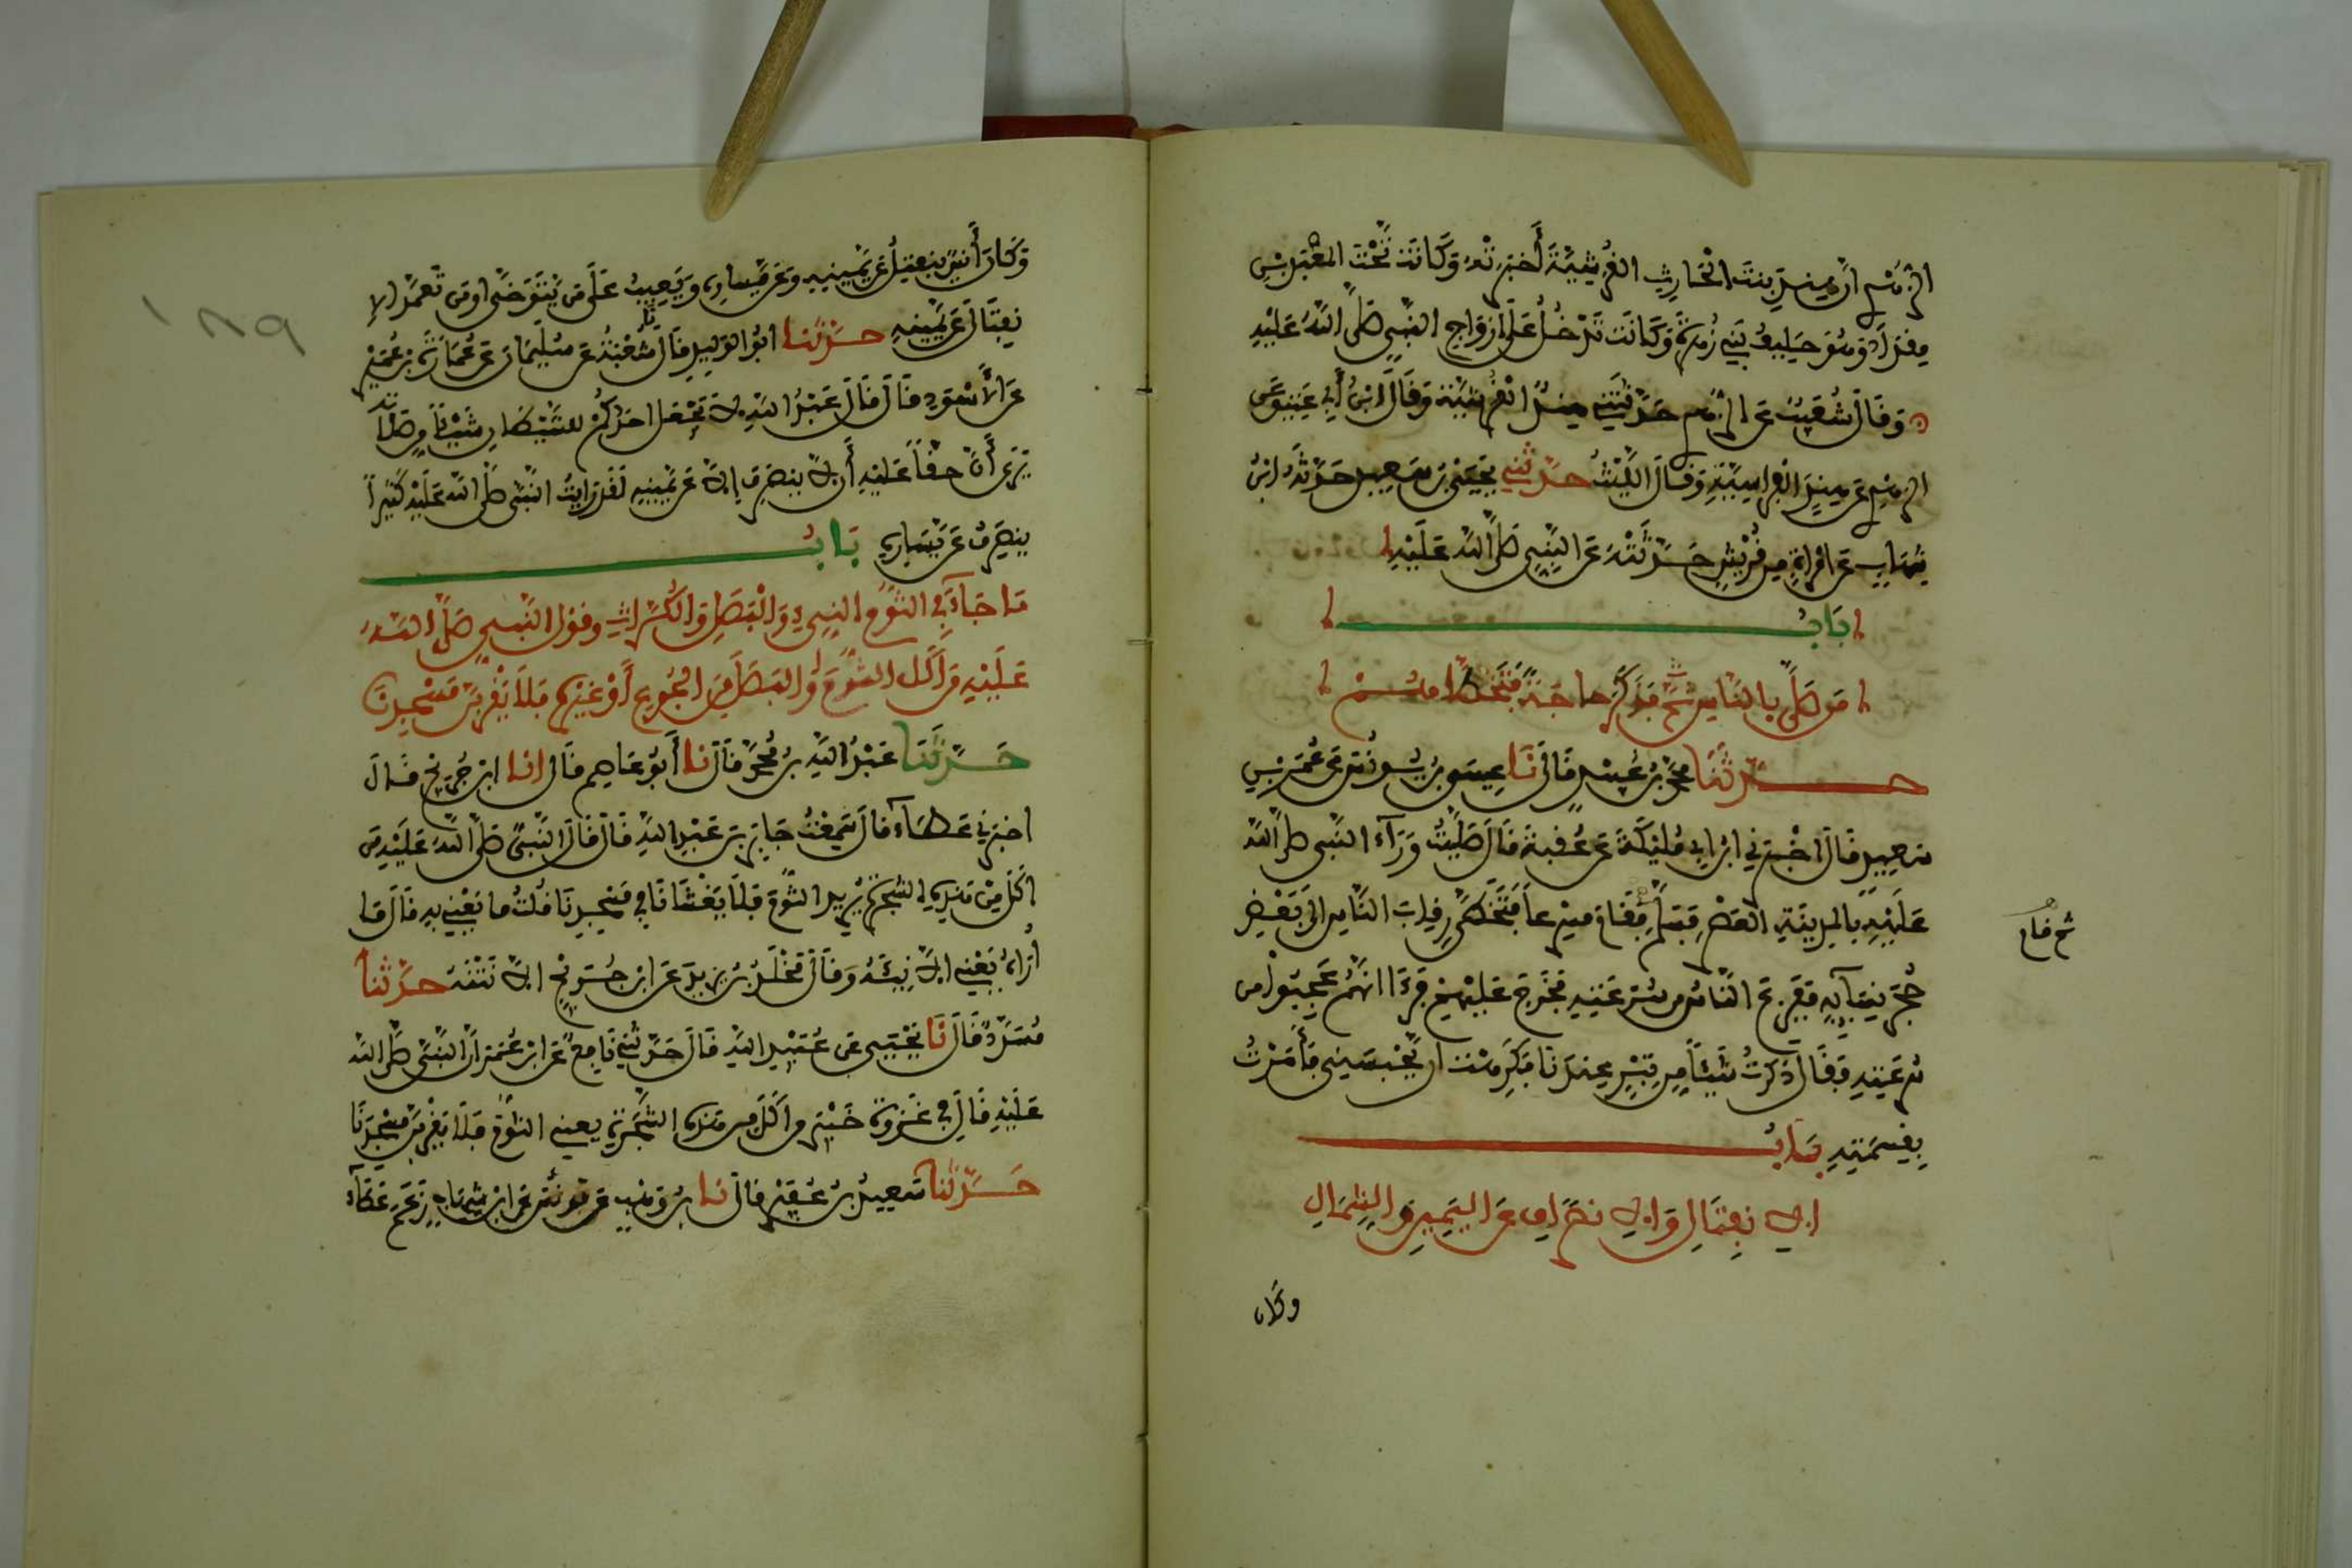 الزهري ان هند بنت الحارث القرشية أخبرته وكانت تحت المعبد بن
مقداد وهو حليف بني زهرة وكانت تدخل على ازواج النبي صلى الله عليه
وقال شعيب عن الزهري حدثتني هند القرشية وقال ابن أبي عتيق عن
الزهري عن هند الفراسية وقال الليث حدثني يحيى بن سعيد حدثه ابن
شهاب عن امرأة من قريش حدثته عن النبي صلى الله عليه
باب
من صلى بالناس ثم فذكر حاجة فتخطاهم
حدثنا محمد بن عبيد قال نا عيسى بن يونس عن عمر بن
سعيد قال اخبرني ابن ابي مليكة عن عقبة قال صليت وراء النبي صلى الله
عليه بالمدينة العصر فسلم فقام مسرعا فتخطى رقاب الناس الى بعض
ثم قام
حجر نسآئه ففزع الناس من سرعته فخرج عليهم فرءا انهم عجبوا من
سرعته فقال ذكرت شيئا من تبر عندنا فكرهت ان يحبسني فأمرت
بقسمته باب
الانفتال والانصراف عن اليمين والشمال
وكان
١٨٩
وكان أنس ينفتل عن يمينه وعن يساره ويعيب على من يتوخى او من تعمد الا
نفتال عن يمينه حدثنا ابو الوليد قال نا شعبة عن سليمان عن عمارة بن عمير
عن الأسود قال قال عبد الله لا يجعل احدكم للشيطان شيئا من صلاته
يرى أن حقا عليه أن لا ينصرف إلا عن يمينه لقد رايت النبي صلى الله عليه كثيرا
ينصرف عن يساره باب
ما جاء في الثوم النيء والبصل والكراث وقول النبي صلى الله
عليه من أكل الثوم والبصل من الجوع أو غيره فلا يقربن مسجدنا
حدثنا عبد الله بن محمد قال نا أبو عاصم قال انا ابن جريج قال
اخبرني عطاء قال سمعت جابر بن عبد الله قال قال النبي صلى الله عليه من
اكل من هذه الشجرة يريد الثوم فلا يغشانا في مسجدنا قلت ما يعني به قال ما
أراه يعني الا نيئه وقال مخلد بن يزيد عن ابن جريج الا نتنه حدثنا
مسدد قال نا يحيى عن عبيد الله قال حدثني نافع عن ابن عمر ان النبي صلى الله
عليه قال في غزوة خيبر من اكل من هذه الشجرة يعني الثوم فلا يقربن مسجدنا
حدثنا سعيد بن عفير قال نا ابن وهب عن يونس عن ابن شهاب زعم عطاء